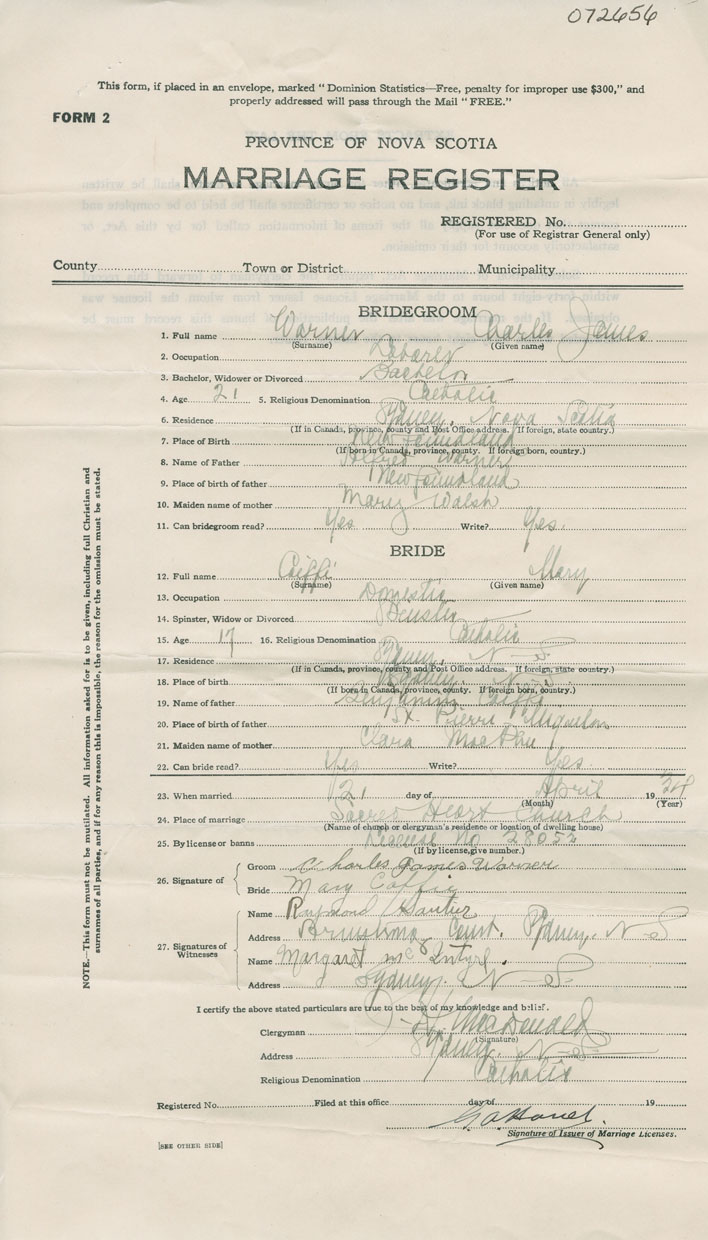 072656
This form, if placed in an envelope, marked "Dominion Statistics—Free, penalty for improper use $300," and
properly addressed will pass through the Mail "FREE."
FORM 2
PROVINCE OF NOVA SCOTIA
MARRIAGE REGISTER
REGISTERED No.
(For use of Registrar General only)
County Town or District Municipality
BRIDEGROOM
1. Full name Warner Charles James
(Surname) (Given name)
2. Occupation Labarer
3. Bachelor, Widower or Divorced Bachelor
4. Age 21 5. Religious Denomination Catholic
6. Residence Sydney, Nova Scotia
(If in Canada, province, county and Post Office address. If foreign, state country.)
7. Place of Birth Newfoundland
(If born in Canada, province, county. If foreign born, country.)
8. Name of Father Alfred Warner
9. Place of birth of father Newfoundland
10. Maiden name of mother Mary Walsh
11. Can bridegroom read? Yes Write? Yes.
BRIDE
12. Full name Mary
(Surname) (Given name)
13. Occupation Domestic
14. Spinster, Widow or Divorced
15. Age 17 16. Religious Denomination Catholic
17. Residence Sydney, N S
(If in Canada, province, county and Post Office address. If foreign, state country.)
18. Place of birth Sydney, N. S
(If born in Canada, province, county. If foreign born, country.)
19. Name of father Benjamin
20. Place of birth of father St. Pierre Miquelon
21. Maiden name of mother Clara MacPhee
22. Can bride read? Yes Write? Yes.
23. When married 21 day of April 19 34
(Month) (Year)
24. Place of marriage Sacred Heart Church
(Name of church or clergyman's residence or location of dwelling house)
25. By license or banns License No 28052
(If by license, give number.)
26. Signature of
Groom Charles James Warner
Bride Mary Coffie
27. Signatures of Witnesses
Name Raymond Gautier
Address Court. Sydney, N S
Name Margaret McIntyre.
Address Sydney. N S.
I certify the above stated particulars are true to the best of my knowledge and belief.
Clergyman MacDonald
(Signature)
Address Sydney. N S
Religious Denomination Catholic
Registered No. Filed at this office day of 19
Signature of Issuer of Marriage Licenses.
[SEE OTHER SIDE]
NOTE.—This form must not be mutilated. All information asked for is to be given, including full Christian and
surnames of all parties, and if for any reason this is impossible, the reason for the omission must be stated.